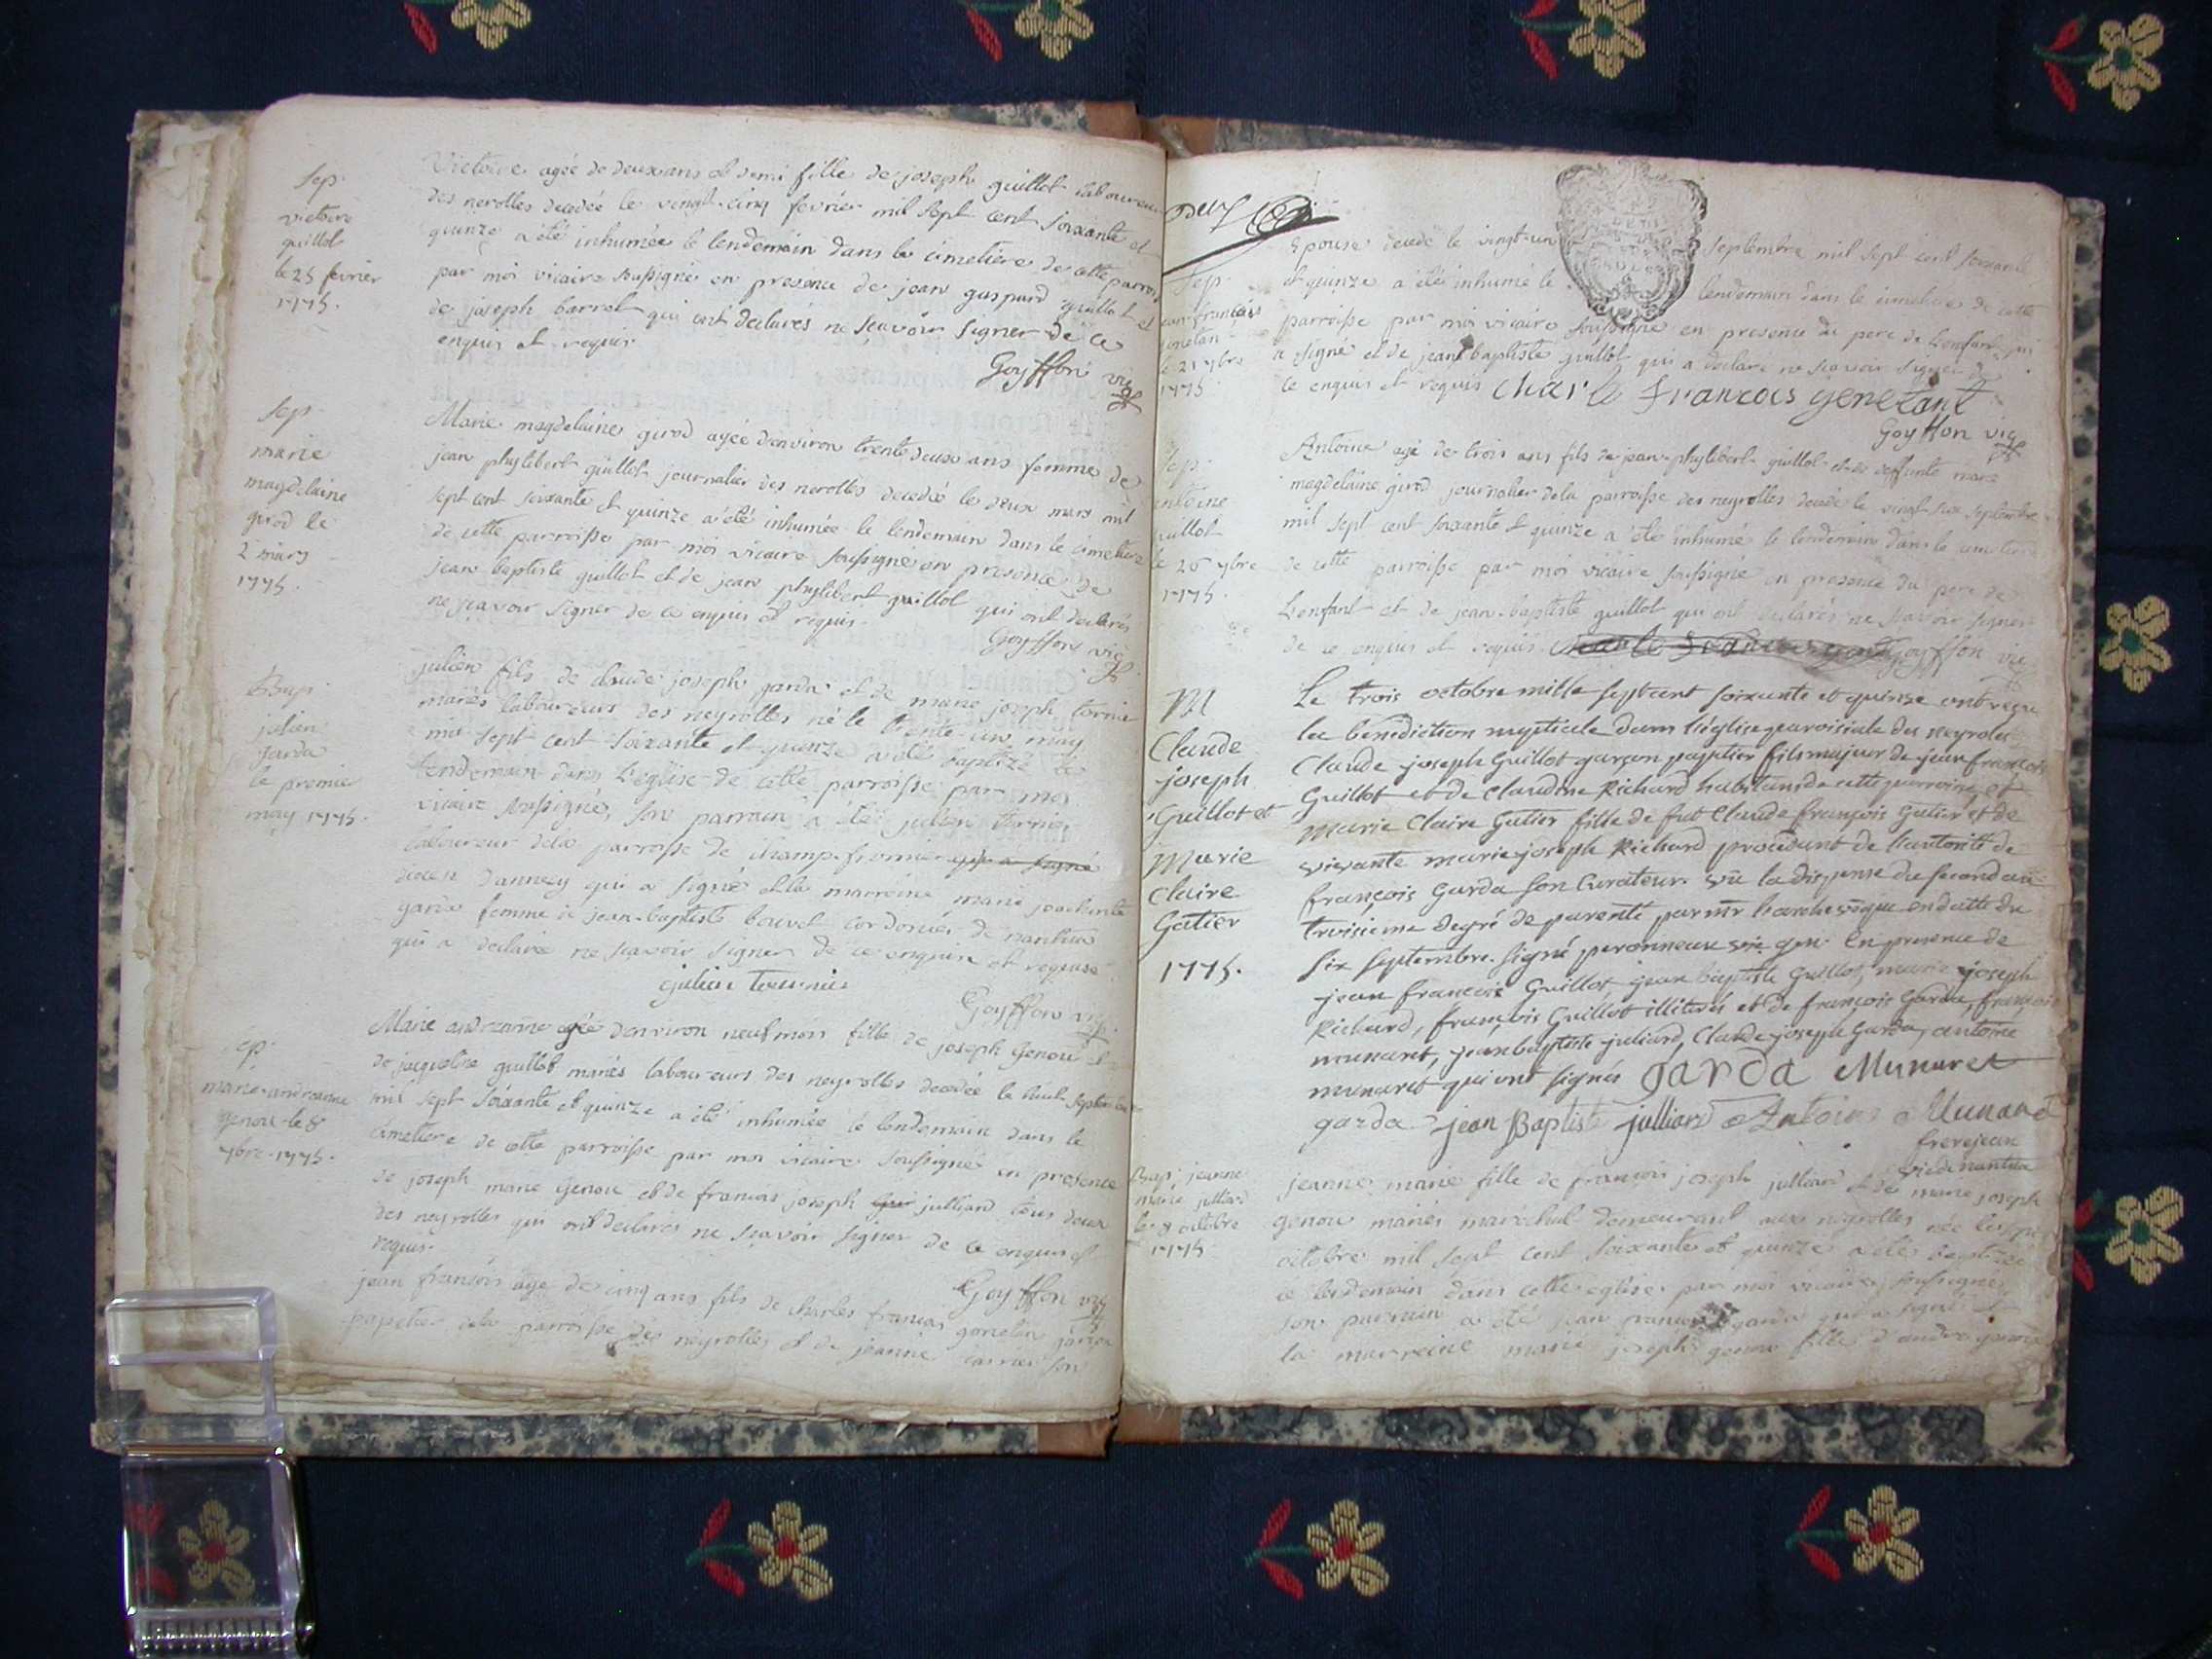 Sep.
victoire
guillot
le 25 fevrier
1775.
Victoire agée de deux ans et demi fille de joseph guillot laboureur
des nerolles decedée le vingt-cinq fevrier mil sept cent soixante et
quinze a été inhumée le lendemain dans le cimetiere de cette parroisse
par moi vicaire soussigné en presence de jean gaspard guillot et
de joseph barrot qui ont declarés ne sçavoir signer de ce
enquis et requis.
Goyffon vic
Sep.
marie
magdelaine
girod le
2 mars
1775.
Marie magdelaine girod agée d'environ trente deux ans femme de
jean phylibert guillot journalier des nerolles decedée le deux mars mil
sept cent soixante et quinze a été inhumée le lendemain dans le cimetiere
de cette parroisse par moi vicaire soussigné en presence de
jean baptiste guillot et de jean phylibert guillot qui ont declarés
ne sçavoir signer de ce enquis et requis.
Goyffon vic
Bap.
julien
garda
le premier
may 1775.
julien fils de claude joseph garda et de marie joseph tornier
mariés laboureurs des neyrolles né le trente-un may
mil sept cent soixante et quinze a été baptizé le
lendemain dans l'eglise de cette parroisse par moi
vicaire soussigné, son parrain a été julien tornier
laboureur dela parroisse de champ-fromier qui a signé
diocese d'annecy qui a signé et la marreine marie
garda femme de jean-baptiste bouvet cordonier de nantua
qui a declarée ne sçavoir signer de ce enquise et requise
julien tournier
Goyffon vic
ep.
marie-andreanne
genou le 8
7bre 1775.
Marie andreanne agée d'environ neuf mois fille de joseph Genou et
de jacqueline guillot mariés laboureurs des neyrolles decedée le huit septembre
mil sept soixante et quinze a été inhumée le lendemain dans le
cimetiere de cette parroisse par moi vicaire soussigné en presence
de joseph marie Genou et de francois joseph gui julliard tous deux
des neyrolles qui ont declarés ne sçavoir signer de ce enquis et
requis.
Goyffon vic
jean francois age de cinq ans fils de charles francois
papetier dela parroisse des neyrolles et de jeanne carrier son
Sep.
jean françois
genetan
le 21 7bre
1775
Epouse decedé le vingt-un septembre mil sept cent soixante
et quinze a été inhumé le lendemain dans le cimetiere de cette
parroisse par moi vicaire soussigné en presence du pere de l'enfant qui
a signé et de jean baptiste guillot qui a declaré ne sçavoir signer de
ce enquis et requis Charle francois genetant
Goyffon vic
Sep.
antoine
guillot
le 26 7bre
1775.
Antoine agé de trois ans fils de jean-phylibert guillot et de deffunte marie
magdelaine girod journalier dela parroisse des neyrolles decedé le vingt six septembre
mil sept cent soixante et quinze a été inhumé le lendemain dans le cimetiere
de cette parroisse par moi vicaire soussigné en presence du pere de
l'enfant et de jean-baptiste guillot qui ont declarés ne sçavoir signer
de ce enquis et requis Goyffon vic
M
Claude
joseph
Guillot et
Marie
Claire
Gutier
1775.
Le trois octobre mille sept cent soixante et quinze ont reçu
la benediction nuptiale dans l'église paroisiale des neyroles
Claude joseph Guillot garçon papetier fils majeur de jean françois
Guillot et de Claudine Richard habitans de cette parroisse, et
Marie Claire Gutier fille de fut Claude françois Gutier et de
vivante marie joseph Richard procedant de l'autorité de
françois Garda son Curateur. vû la dispense du second au
troisieme degré de parenté par mr l'archevêque en datte du
six septembre. signé peronneau vic gen. en presence de
jean francois Guillot jean baptiste Guillot, marie joseph
Richard, françois Guillot illiterés et de françois Garda, françois
munaret, jean baptiste juliard, Claude joseph Garda, antoine
munaret qui ont signés garda Munaret
garda jean Baptiste julliard Antoine Munaret
frerejean
vic de nantua
Bap. jeanne
marie julliard
le 8 octobre
1775
jeanne marie fille de françois joseph julliard et de marie joseph
genou mariés marechal demeurant aux neyrolles née le sept
octobre mil sept cent soixante et quinze a été baptizée
le lendemain dans cette eglise par moi vicaire soussigné,
son parrain a été jean francois garda qui a signé et
la marreine marie joseph genou fille d'andre genou